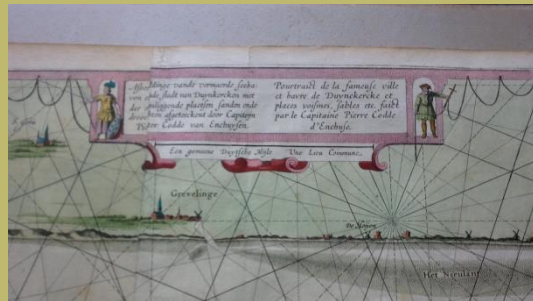 Afbeeldinge vande vermaerde seehaven
ende stadt van Duynkercken met
der omliggende plaetsen sanden ende
droochten afgeteeckent door Capiteyn
Pieter Codde van Enchuysen.
Pourtraict de la fameuse ville
et havre de Duynckercke et
places voisines, sables etc. faict
par le Capitaine Pierre Codde
d'Enchuse.
Een gemeene Duytsche Myle Une Lieu Commune
Grevelinge
Het Nieulant